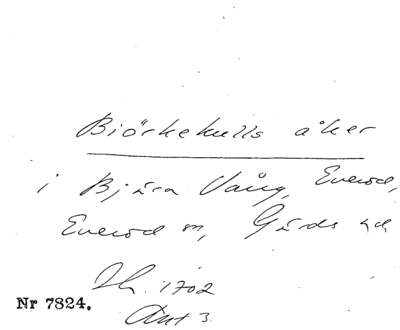 Biörkekulls åker
i Bjära Vång, Everöd,
Everöd sn, Gärds hd
Lh. 1702
Ant 3.
Nr 7824.